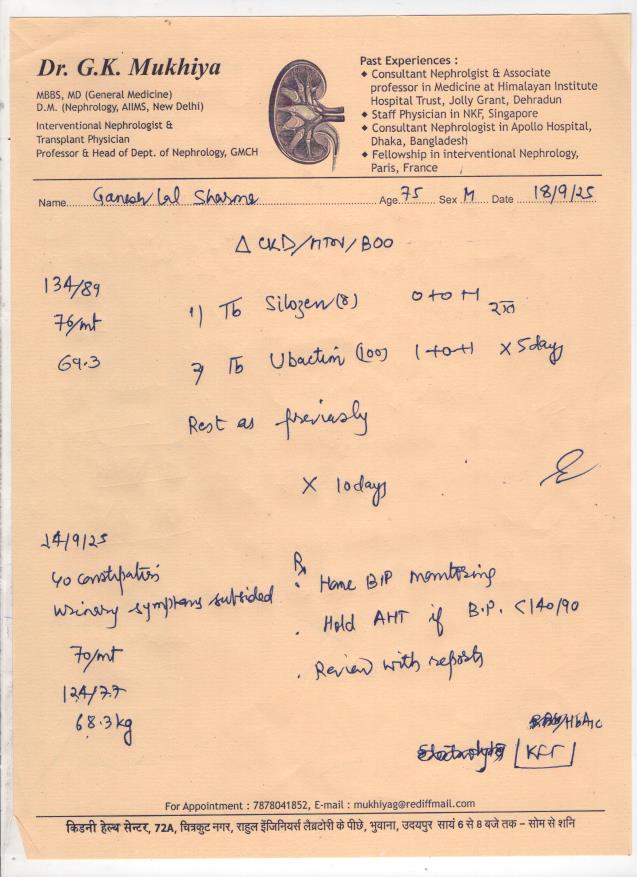 Dr. G.K. Mukhiya
MBBS, MD (General Medicine)
D.M. (Nephrology, AIIMS, New Delhi)
Interventional Nephrologist &
Transplant Physician
Professor & Head of Dept. of Nephrology, GMCH
Past Experiences :
◆ Consultant Nephrolgist & Associate
professor in Medicine at Himalayan Institute
Hospital Trust, Jolly Grant, Dehradun
◆ Staff Physician in NKF, Singapore
◆ Consultant Nephrologist in Apollo Hospital,
Dhaka, Bangladesh
◆ Fellowship in interventional Nephrology,
Paris, France
Name Ganesh Lal Sharma Age 75 Sex M Date 18/9/25
Δ CKD/HTN/BOO
134/89
76/mt
69.3
1) Tb Silozen (8) 0+0+1
2) Tb Ubactim (100) 1+0+1 X 5 days
Rest as previously
X 10 days
24/9/25
c/o constipation
Urinary symptoms subsided
70/mt
124/77
68.3 kg
Rx
. Home B.P monitoring
. Hold AHT if B.P. <140/90
. Review with reports
/HbA1c
KFT
For Appointment : 7878041852, E-mail : mukhiyag@rediffmail.com
किडनी हेल्थ सेन्टर, 72A, चित्रकुट नगर, राहुल इंजिनियर्स लैब्रटोरी के पीछे, भुवाना, उदयपुर सायं 6 से 8 बजे तक - सोम से शनि